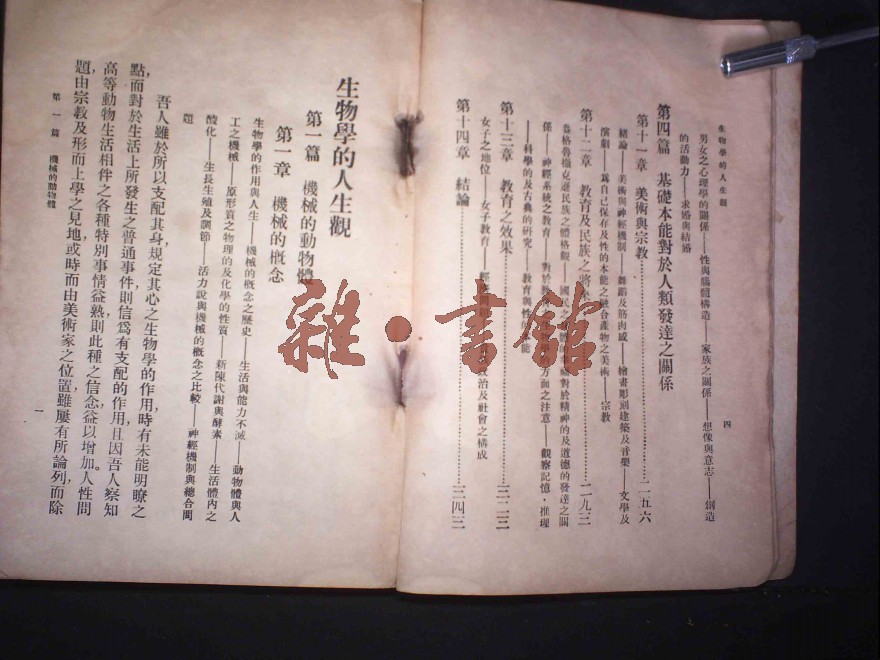 生物學的人生觀
四
男女之心理學的關係——性與腦髓構造——家族之關係——想像與意志——創造
的活動力——求婚與結婚
第四篇 基礎本能對於人類發達之關係
第十一章 美術與宗教……二五六
緒論——美術與神經機制——舞蹈及筋肉感——繪畫彫刻建築及音樂——文學及
演劇——爲自己保存及性的本能之融合產物之美術——宗教
第十二章 教育及民族之將……二九三
盎格魯撒克遜民族之體格觀——國民之對於精神的及道德的發達之關
係——神經系統之教育——對於方面之注意——觀察記憶,推理
——科學的及古典的研究——教育與性能
第十三章 教育之效果……三二三
女子之地位——女子教育——政治及社會之構成
第十四章 結論……三四三
雜·書館
生物學的人生觀
第一篇 機械的動物體
第一章 機械的概念
生物學的作用與人生——機械的概念之歷史——生活與能力不滅——動物體與人
工之機械——原形質之物理的及化學的性質——新陳代謝與酵素——生活體內之
酸化——生長生殖及調節——活力說與機械的概念之比較——神經機制與總合問
題
吾人雖於所以支配其身,規定其心之生物學的作用,時有未能明瞭之
點,而對於生活上所發生之普通事件,則信爲有支配的作用,且因吾人察知
高等動物生活相伴之各種特別事情益熟,則此種之信念益以增加。人性問
題,由宗教及形而上學之見地,或時而由美術家之位置,雖屢有所論列,而除
第一篇 機械的動物體
一